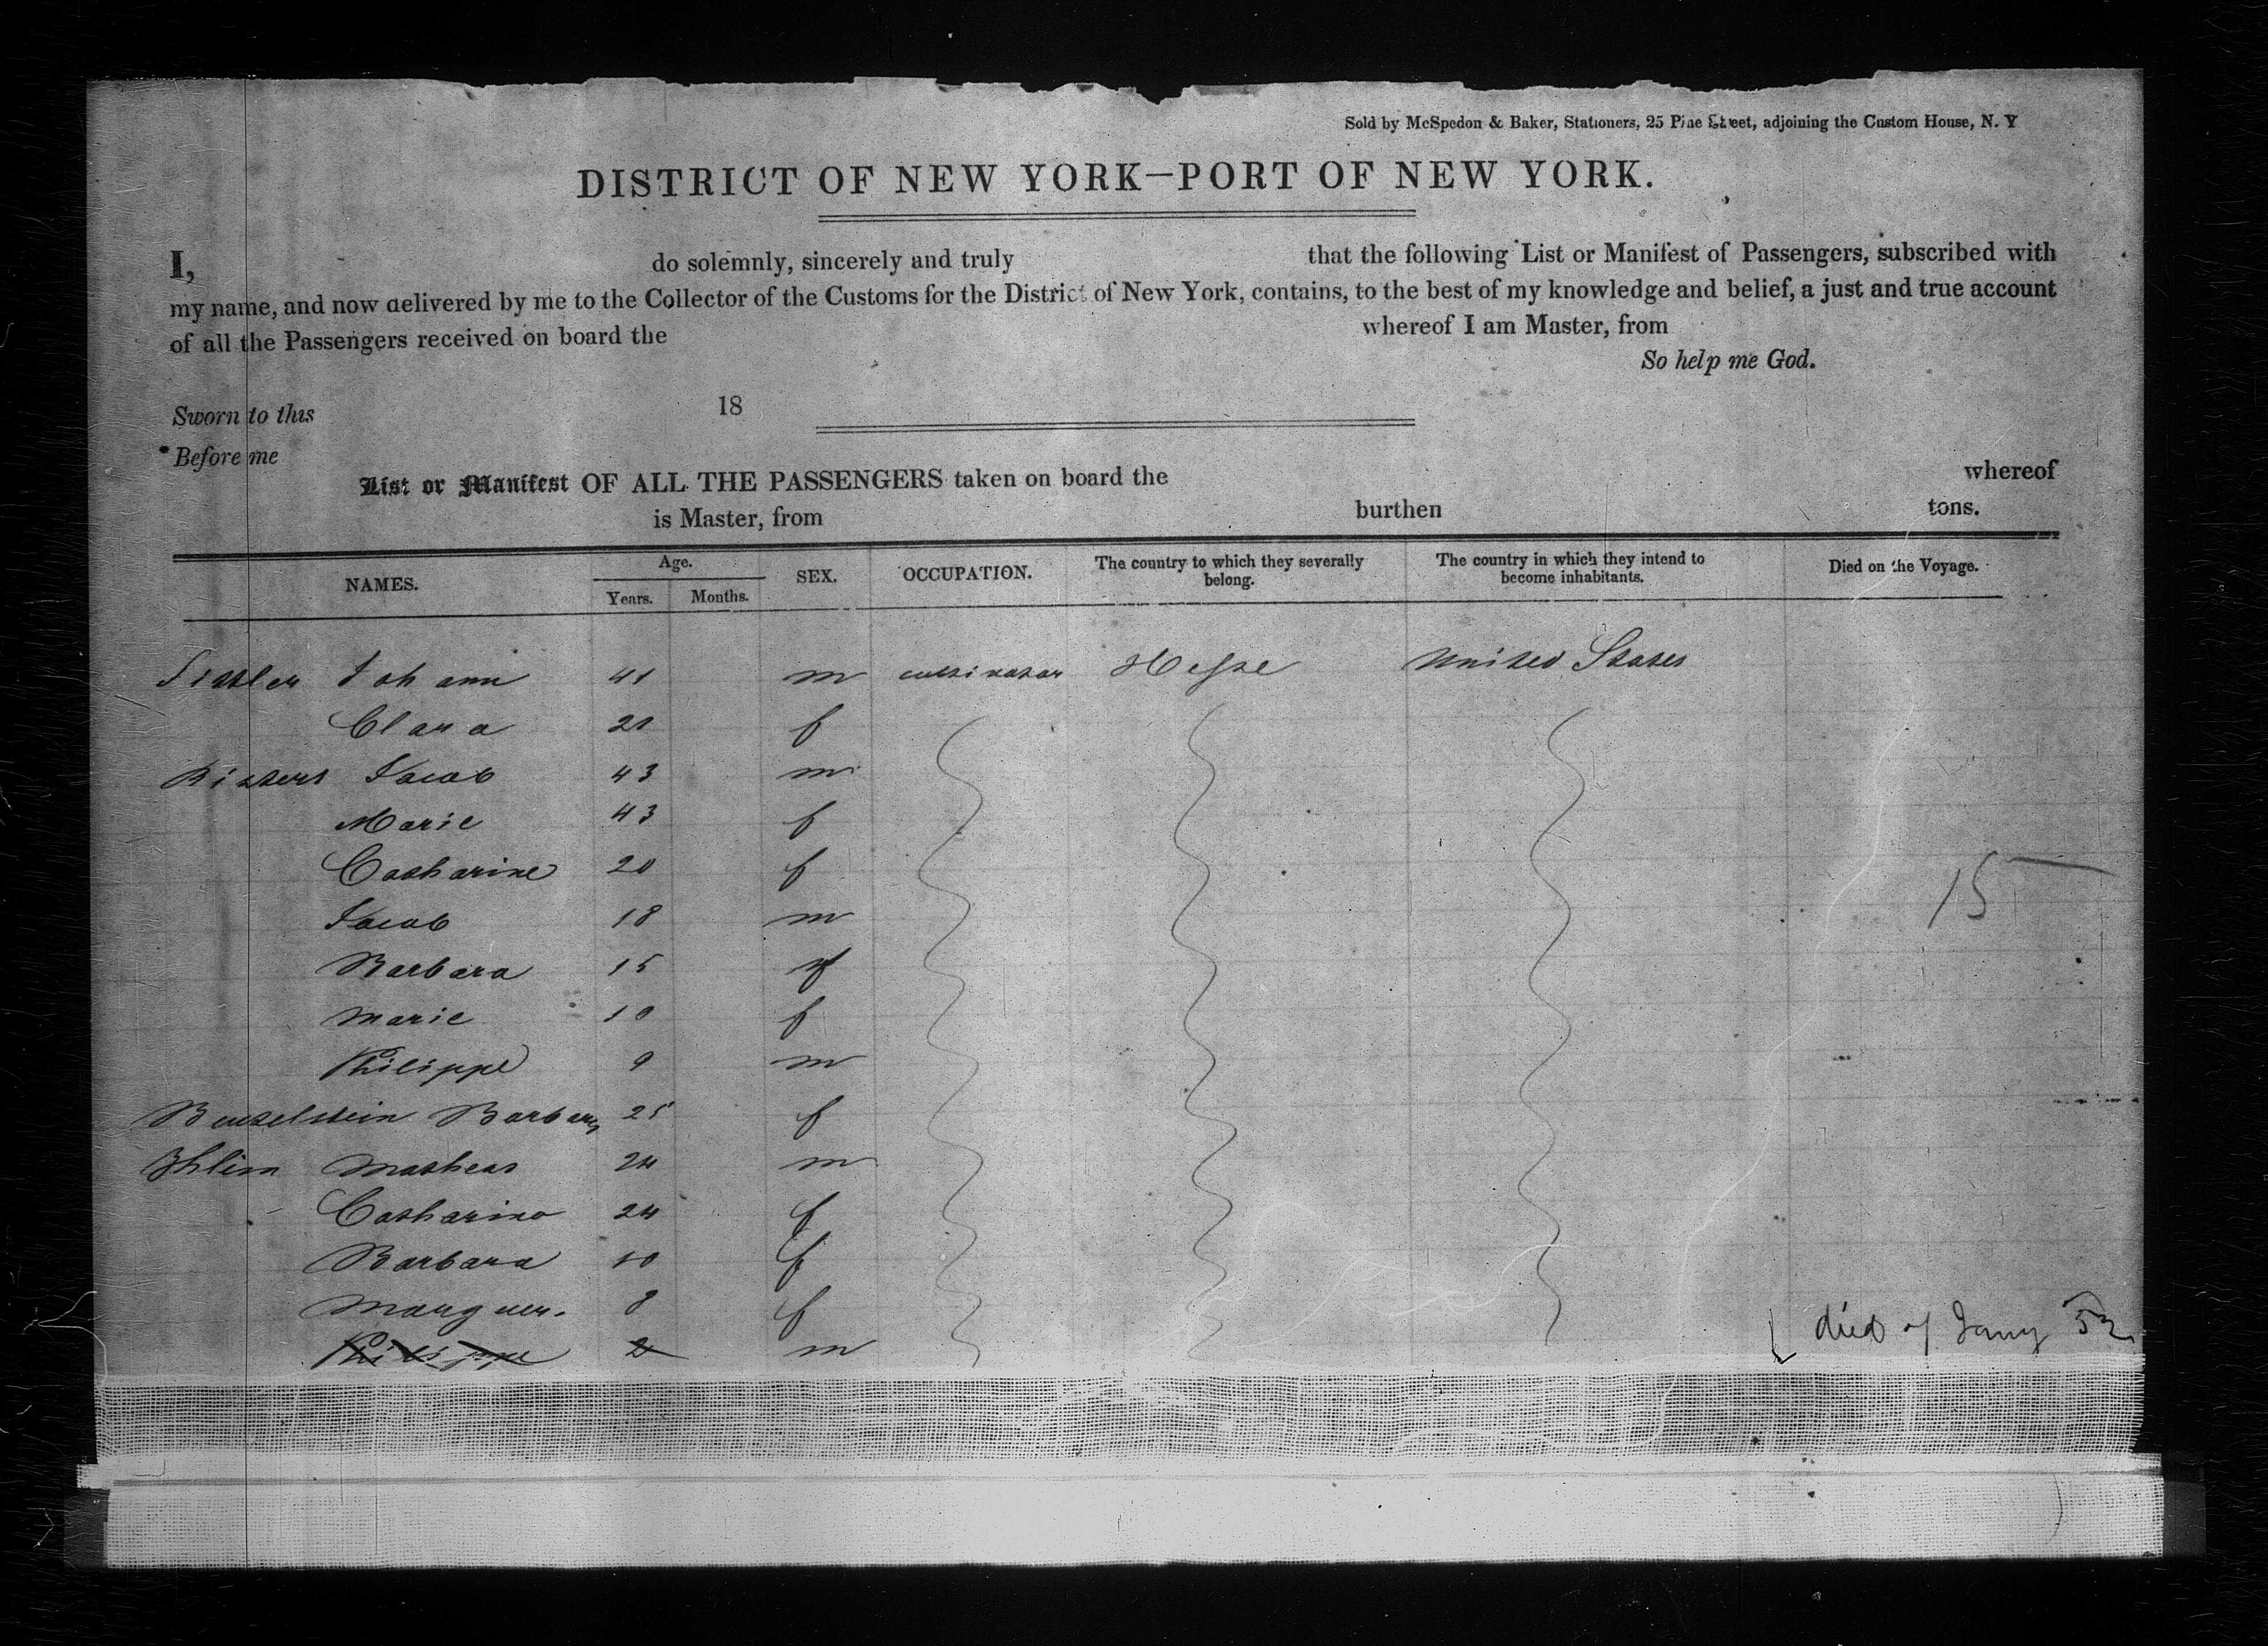 Sold by McSpedon & Baker, Stationers, 25 Pine Street, adjoining the Custom House, N. Y
DISTRICT OF NEW YORK—PORT OF NEW YORK.
I, do solemnly, sincerely and truly that the following List or Manifest of Passengers, subscribed with
my name, and now delivered by me to the Collector of the Customs for the District of New York, contains, to the best of my knowledge and belief, a just and true account
of all the Passengers received on board the whereof I am Master, from
So help me God.
Sworn to this 18
Before me
List or Manifest OF ALL THE PASSENGERS taken on board the whereof
is Master, from burthen tons.
NAMES. Age. Years. Months. SEX. OCCUPATION. The country to which they severally belong. The country in which they intend to become inhabitants. Died on the Voyage.
Johann 41 m cultivator Hesse United States
Clara 21 f
Ritters Jacob 43 m
Marie 43 f
Catharine 20 f
Jacob 18 m
15
Barbara 15 f
Marie 10 f
Philippe 9 m
Barbara 25 f
Matheas 24 m
Catharine 24 f
Barbara 10 f
Marguer. 8 f
Philippe 2 m died 7 Jany 52